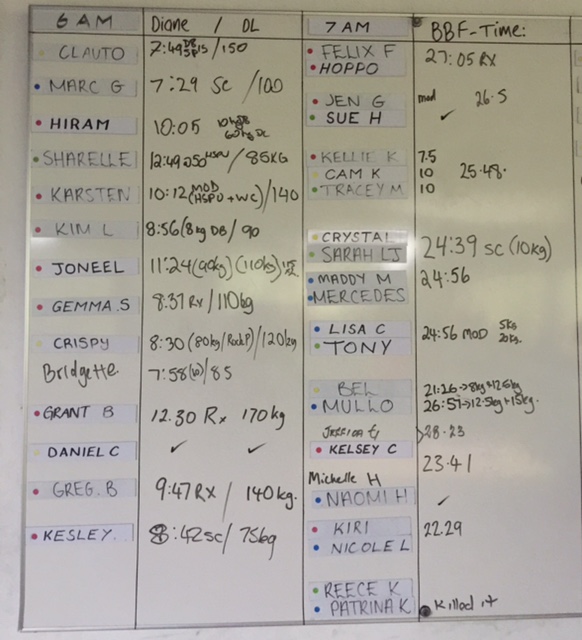 6 AM Diane / DL
CLAUTO 7:49 /150
MARC G 7:29 SC /100
HIRAM 10:05
SHARELLE 12:49 /85KG
KARSTEN 10:12 (MOD HSPU + WC) /140
KIM L 8:56 (8kg DB / 90
JONEEL 11:24 (99kg) (110kg)
GEMMA.S 8:37 RX / 110kg
CRISPY 8:30 (80kg/RockP) /120kg
Bridgette 7:58 /85
GRANT B 12.30 Rx 170kg
DANIEL C ✓ ✓
GREG.B 9:47 RX / 140kg.
KESLEY. 8:42 SC / 75kg
7 AM BBF-Time:
FELIX F 27:05 RX
HOPPO
JEN G mod 26.5
SUE H ✓
KELLIE K 7.5
CAM K 10 25.48.
TRACEY M 10
CRYSTAL
SARAH LJ 24:39 SC (10kg)
MADDY M 24:56
MERCEDES
LISA C 24:56 MOD 5kg
TONY 20kg.
BEL 21:26→8kg+12.5kg
MULLO 26:57→12.5kg+15kg.
28.23
KELSEY C 23.41
Michelle H
NAOMI H ✓
KIRI 22.29
NICOLE L
REECE K
PATRINA K Killed it